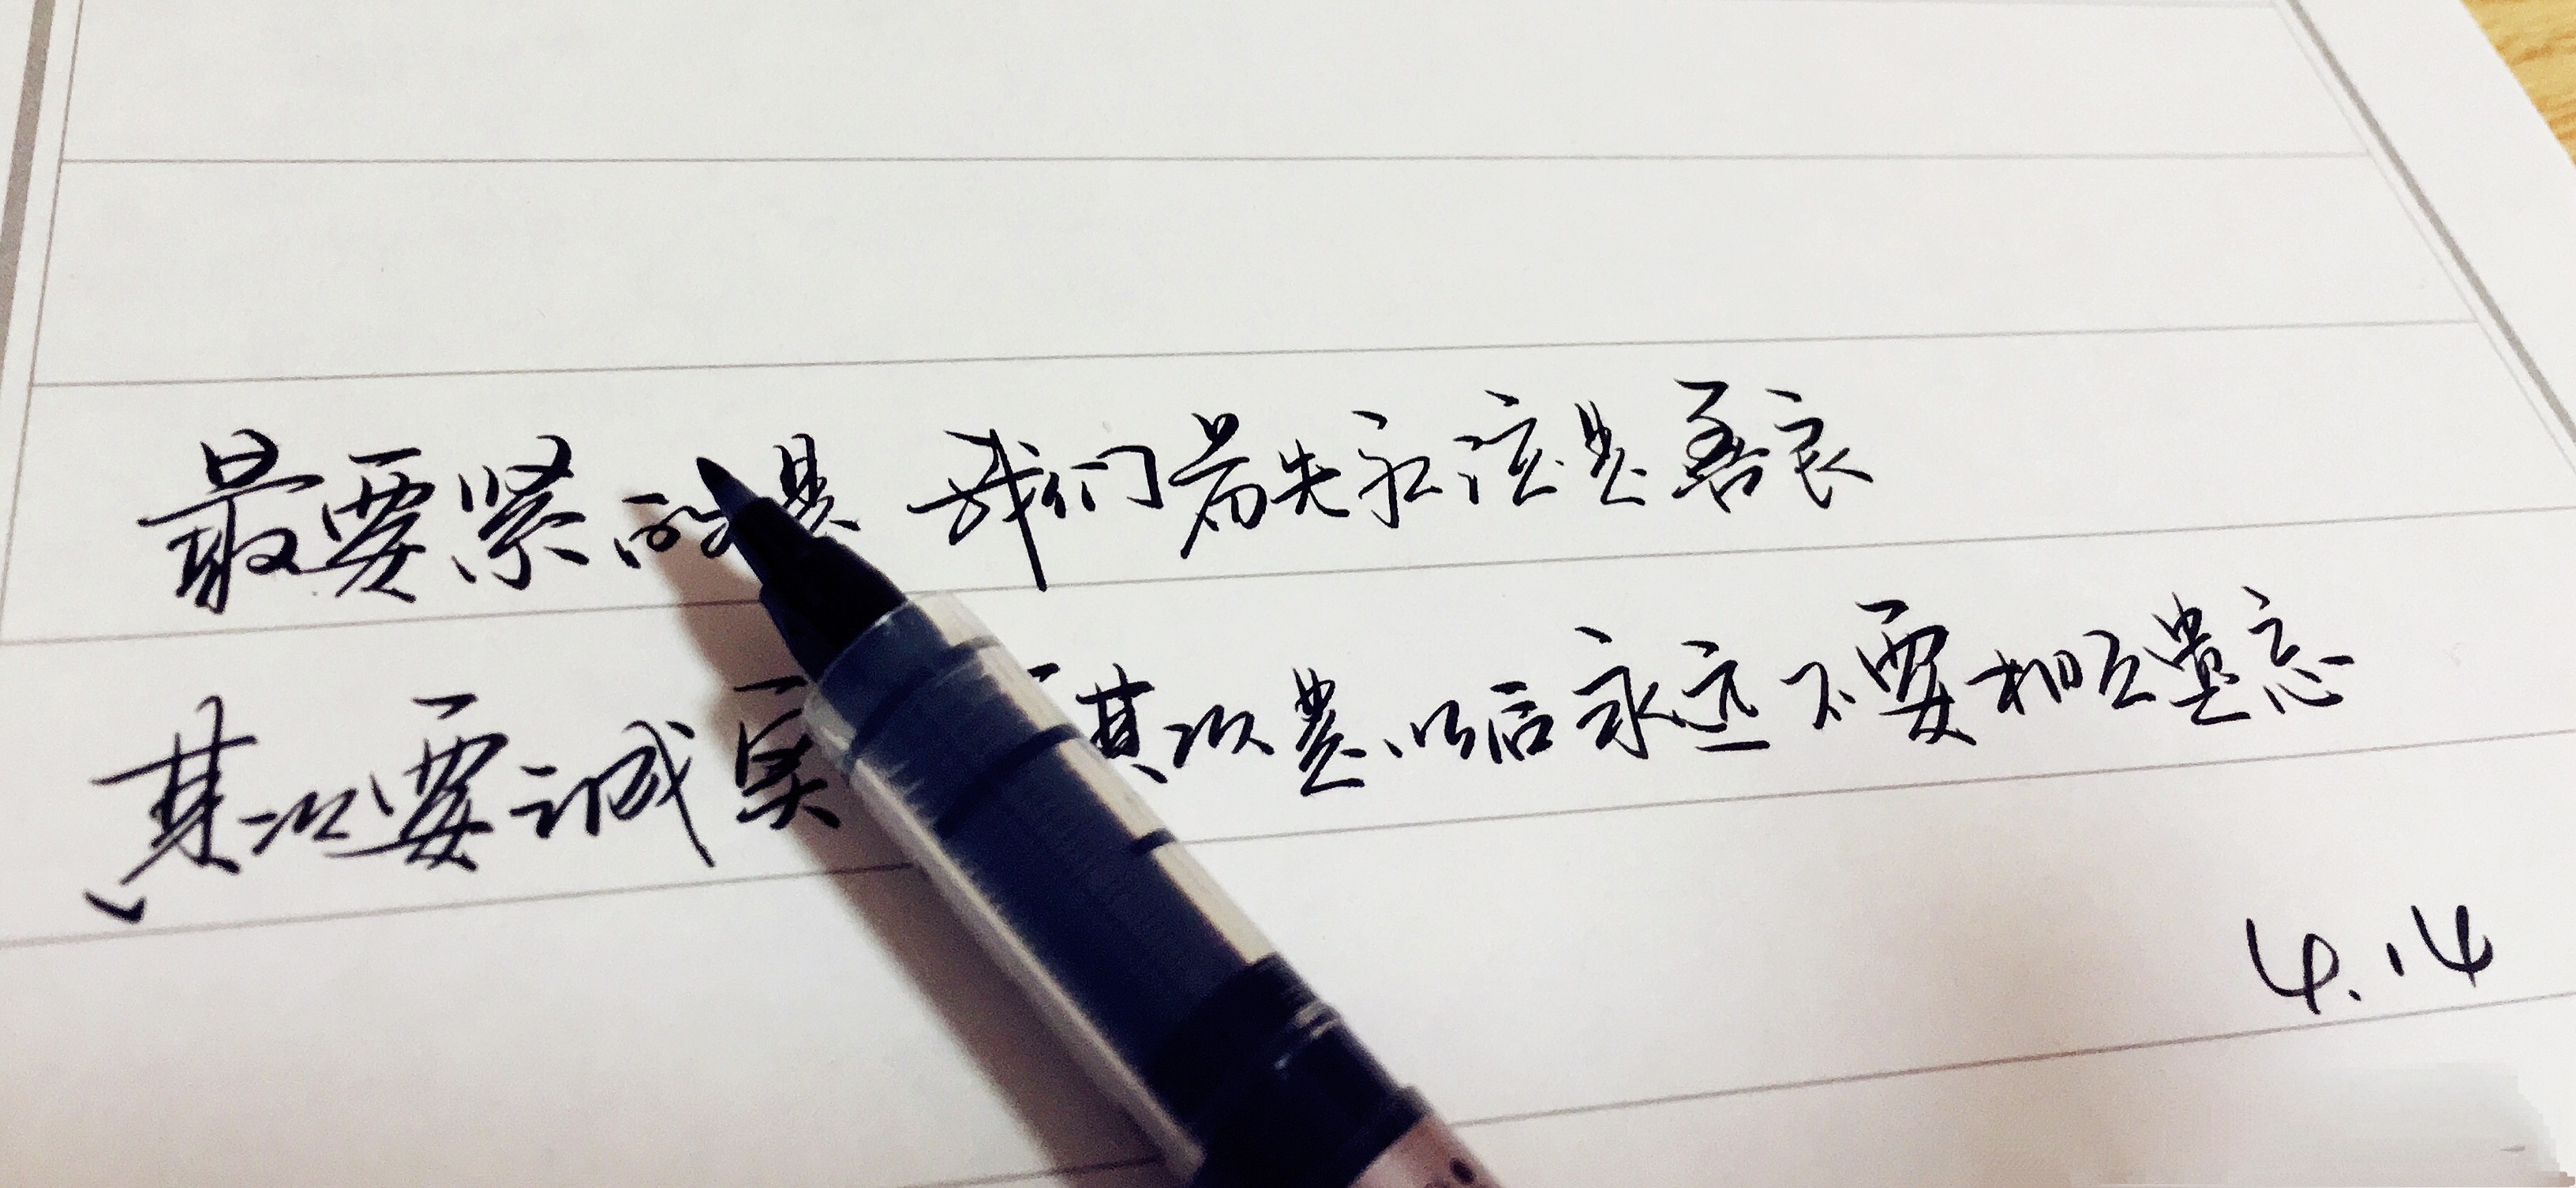 最要紧的是 我们首先应该是善良
其次要诚实 其次是以后永远不要相互遗忘
4.14